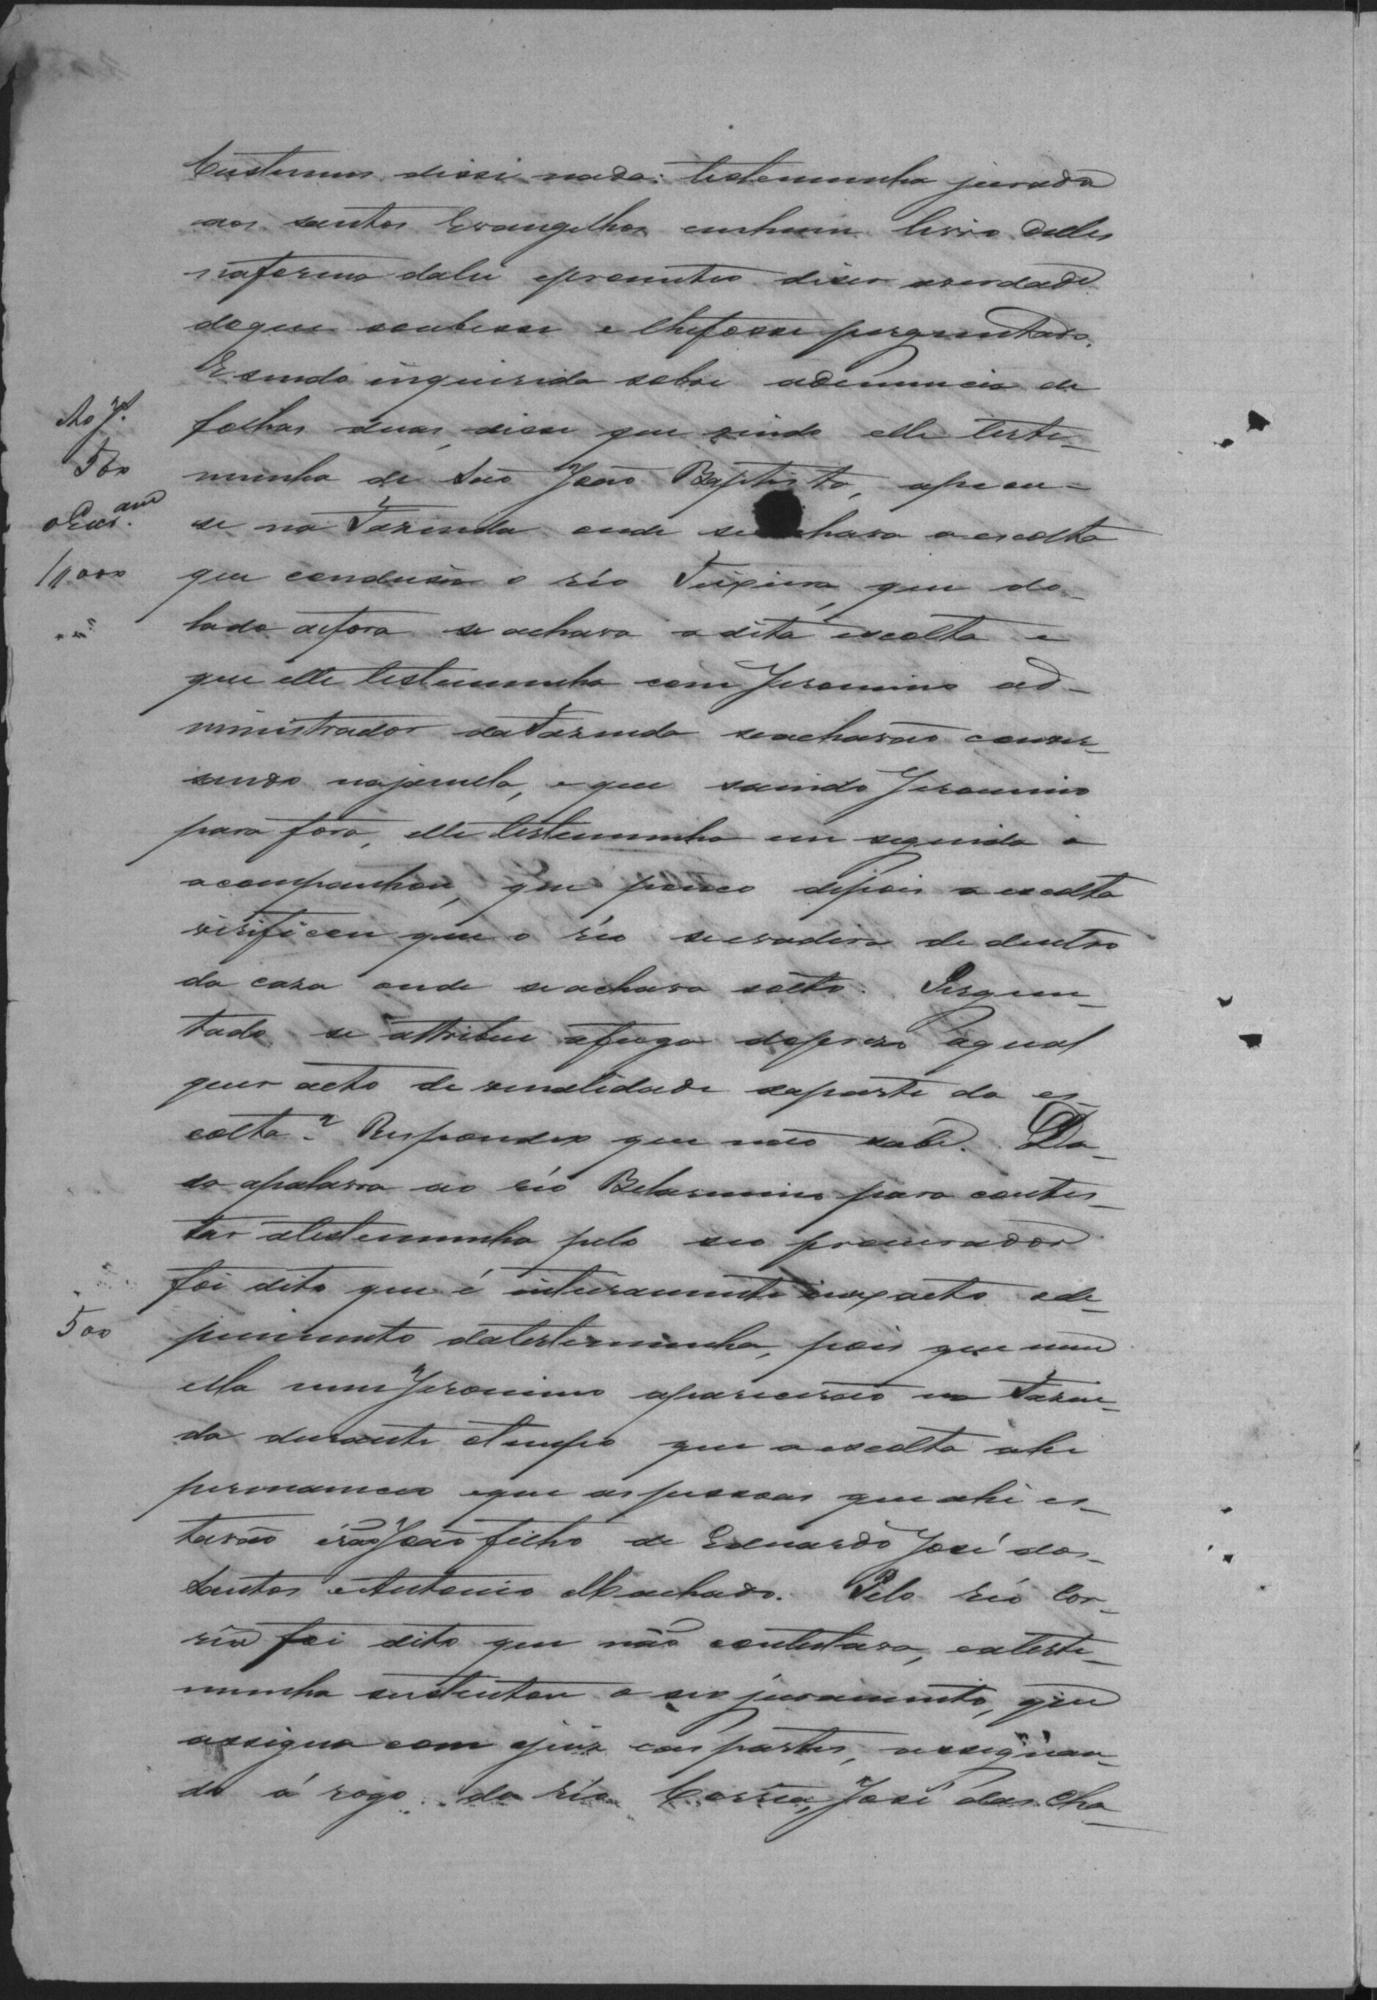 Custumes disse nada: testemunha jurada
aos santos Evangelhos em hum livro delles
na forma da lei e prometeo diser a verdade
do que soubesse e lhe fosse perguntado.
E sendo inquirida sobre a denuncia de
folhas duas, disse que vindo elle teste-
Ao J.
500
munha de São João Baptista, apeou-
se na Fazenda onde se achava a escolta
1$000
que condusia o réo Teixeira, que do
lado de fora se achava a dita escolta e
que elle testemunha com Jeronimo ad-
ministrador da Fazenda se achavão conver-
sando na janella, e que saindo Jeronimo
para fora, elle testemunha em seguida o
acompanhou, que pouco depois a escolta
virificou que o réo se evadira de dentro
da caza onde se achava solto. Pergun-
tado se attribue a fuga do prezo a qual
quer acto de venalidade da parte da es-
colta? Respondeo que não sabe. Da-
da a palavra ao réo Belarmino para contes-
tar a testemunha pelo seo procurador
foi dito que é inteiramente inexacto o de-
500
poimento da testemunha, pois que nem
ella nem Jeronimo aparecerão na Fazen-
da durante o tempo que a escolta ahi
permaneceo e que as pessoas que ahi es-
tavão erão João filho de Eduardo José dos
Santos e Antonio Machado. Pelo réo Cor-
rêa foi dito que não contestava, e a teste-
munha sustentou o seo juramento, que
assigna com o juiz e as partes, assignan-
do á rogo do réo Corrêa, José das Cha-